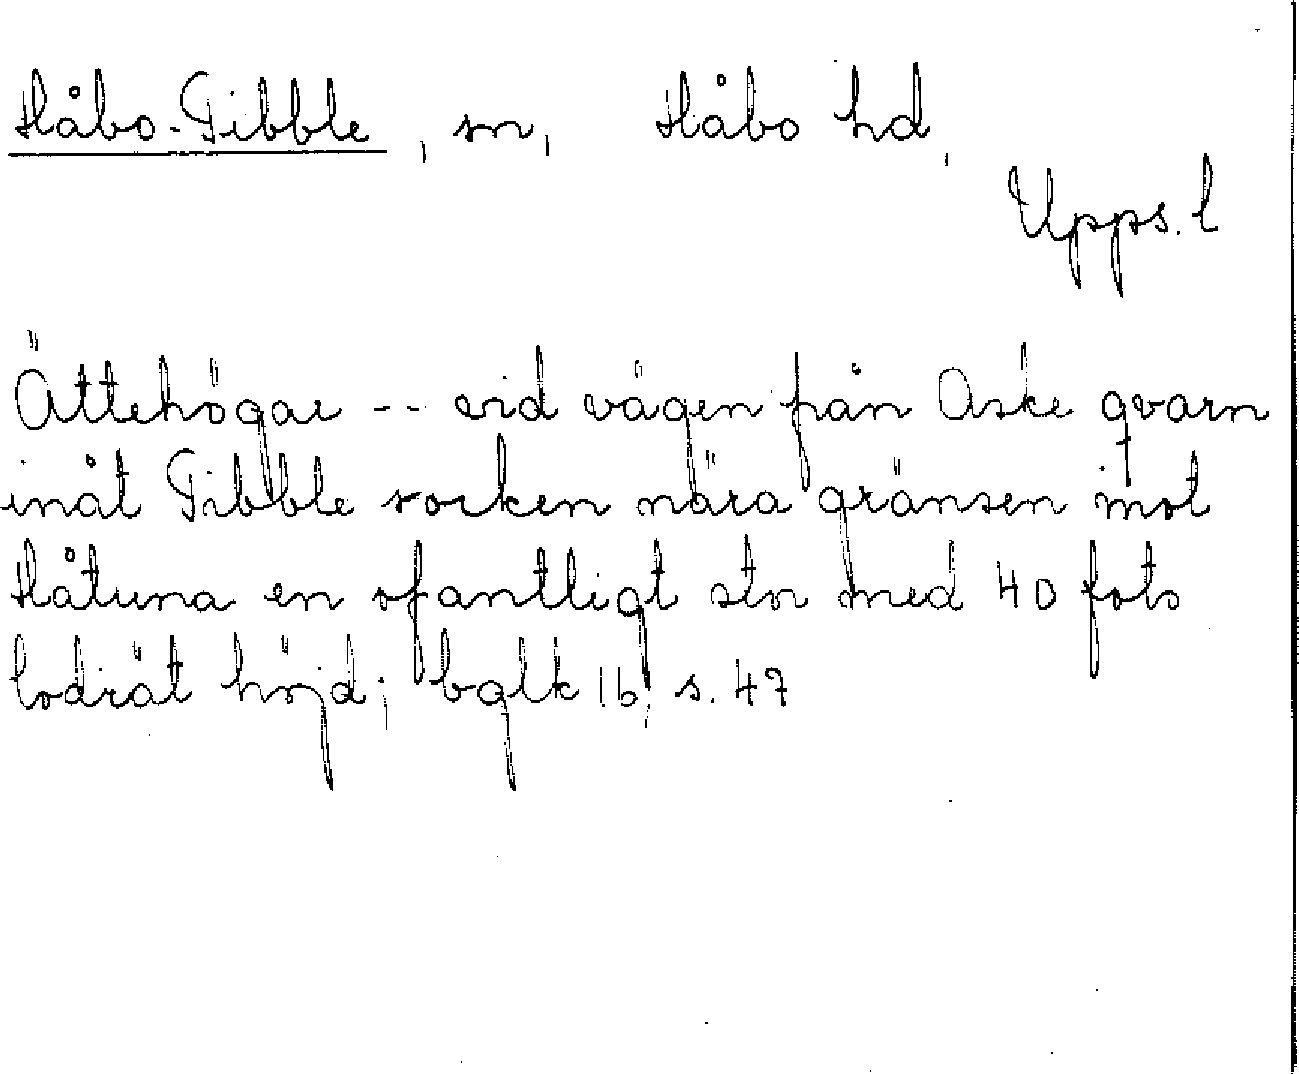 Håbo-Tibble, sn, Håbo hd,
Upps. l
Ättehögar -- vid vägen från Aske qvarn
inåt Tibble socken nära gränsen mot
Håtuna en ofantligt stor med 40 fots
lodrät höjd; bqlk 16, s. 47